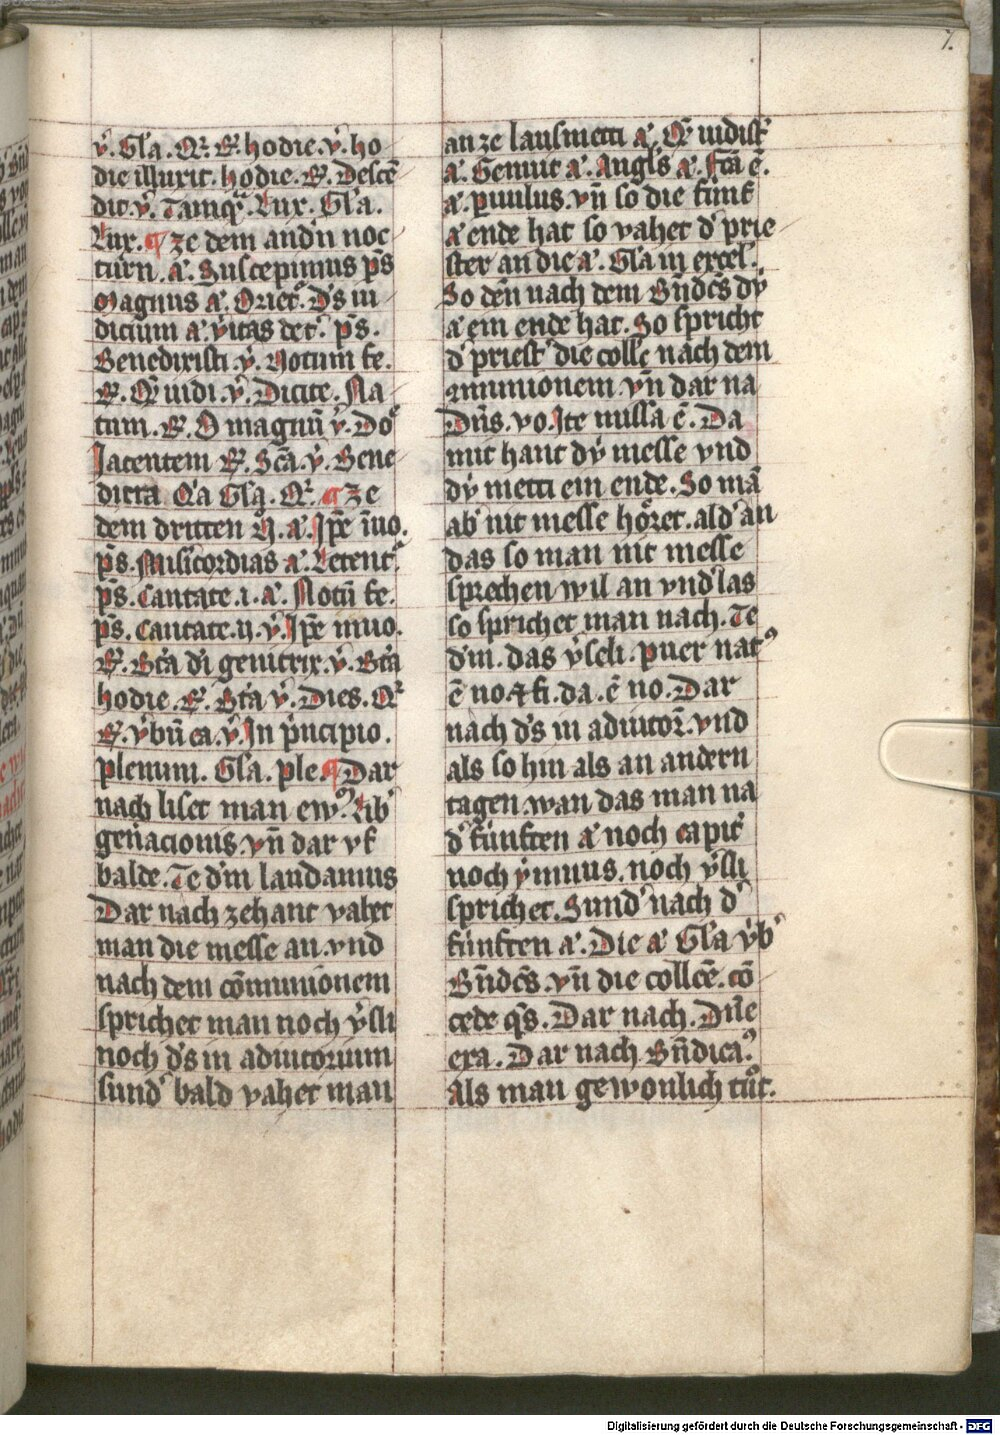 7.
ẏ. Gl'a. Qͬ. R̓. hodie. ẏ. ho
die illuxit. hodie. R̓. Descē
dit ẏ. Tamqͣ. Lux. Gl'a.
Lux. ¶ ze dem and'n noc
turn. a̓. Suscepimus p̄s
Magnus a̓. Oriet᷑. D's iu
dicium a̓. v̓itas det᷑. p̄s.
Benedixisti. ẏ. Notum fe.
R̓. Qͤ uidi. ẏ. Dicite. Na
tum. R̓. O magnū ẏ. Do
Jacentem R̓. Sc̄a. ẏ. Bene
dicta Q'a Gl'a. Qͬ. ¶ ze
dem dritten N̄. a̓. Ip̄e īuo.
p̄s. Misicordias a̓. Letent᷑.
p̄s. Cantate. i. a̓. Notū fe.
p̄s. Cantate. ij. ẏ. Ip̄e inuo.
R̓. Bt̄a di genitrix. ẏ. Bt̄a
hodie. R̓. Bt̄a ẏ. Dies. Qͬ
R̓. v̓bū ca. ẏ. In p̓ncipio.
plenum. Gl'a. ple. ¶ Dar
nach liset man ewꝰ. Lib'
gen̓acionis. vn̄ dar vf
balde. Te d'm laudamus
Dar nach zehant vahet
man die messe an. vnd
nach dem cōmunionem
sprichet man noch v̓sli
noch d's in adiutorium
sund' bald vahet man
an ze lausmetti a̓. Qͤ uidist᷑
a̓. Genuit a̓. Angl's a̓. Fc̄a ē.
a̓. puulus. vn̄ so die fúnf
a̓ ende hat so vahet d' prie
ster an die a̓. Gl'a in excel'.
So den̄ nach dem Bn̄dc̄s dẏ
a̓ ein ende hat. So spricht
d' priest' die colle nach dem
ꝯmunionem. vn̄ dar na
Dn̄s. vo. Ite missa ē. Da
mit hant dẏ messe vnd
dẏ metti ein ende. So mā
ab' nit messe hȯ́ret. ald' an
das so man nit messe
sprechen wil an vnd'las
so sprichet man nach. Te
d'm. das v̓seli. puer natꝰ
ē no. ⁊ fi. da. ē no. Dar
nach d's in adiutor̄. vnd
als so hin als an andern
tagen. wan das man na
d' fúnften a̓ noch capit᷑
noch ẏmnus. noch v̓sli
sprichet. Sund' nach d'
fúnften a̓. Die a̓ Gl'a v̓b'
Bn̄dc̄s. vn̄ die collc̄e. cō
cede q̄s. Dar nach. Dn̄e
exa. Dar nach Bn̄dicaꝰ.
als man gewonlich tůt.
Digitalisierung gefördert durch die Deutsche Forschungsgemeinschaft - DFG